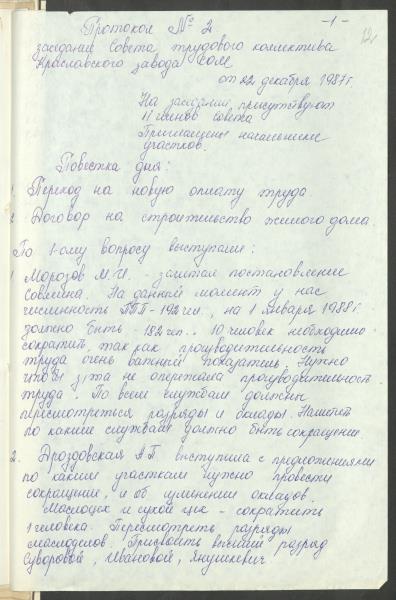 -1-
12
Протокол № 2
заседания Совета трудового коллектива
Краславского завода СОМ
от 22 декабря 1987г.
На заседании присутствуют
11 членов совета
Приглашены начальники
участков.
Повестка дня:
1. Переход на новую оплату труда.
2. Договор на строительство жилого дома.
По 1-ому вопросу выступали:
1. Морозов М.И. - зачитал постановление
Совмина. На данный момент у нас
численность ППП - 192 чел., на 1 января 1988 г.
должно быть - 182 чел.. 10 человек необходимо
сократить, так как производительность
труда очень важный показатель. Нужно
чтобы з/та не опережала производительность
труда. По всем службам должны
пересмотреться разряды и оклады.
по каким службам должно быть сокращение
2. Дроздовская А.П. выступила с предложениями
по каким участкам нужно провести
сокращение, и об изменении окладов.
Маслоцех и сухой цех - сократить
1 человека. Пересмотреть разряды
маслоделов. Присвоить высший разряд
Суворовой, Ивановой, Янушкевич